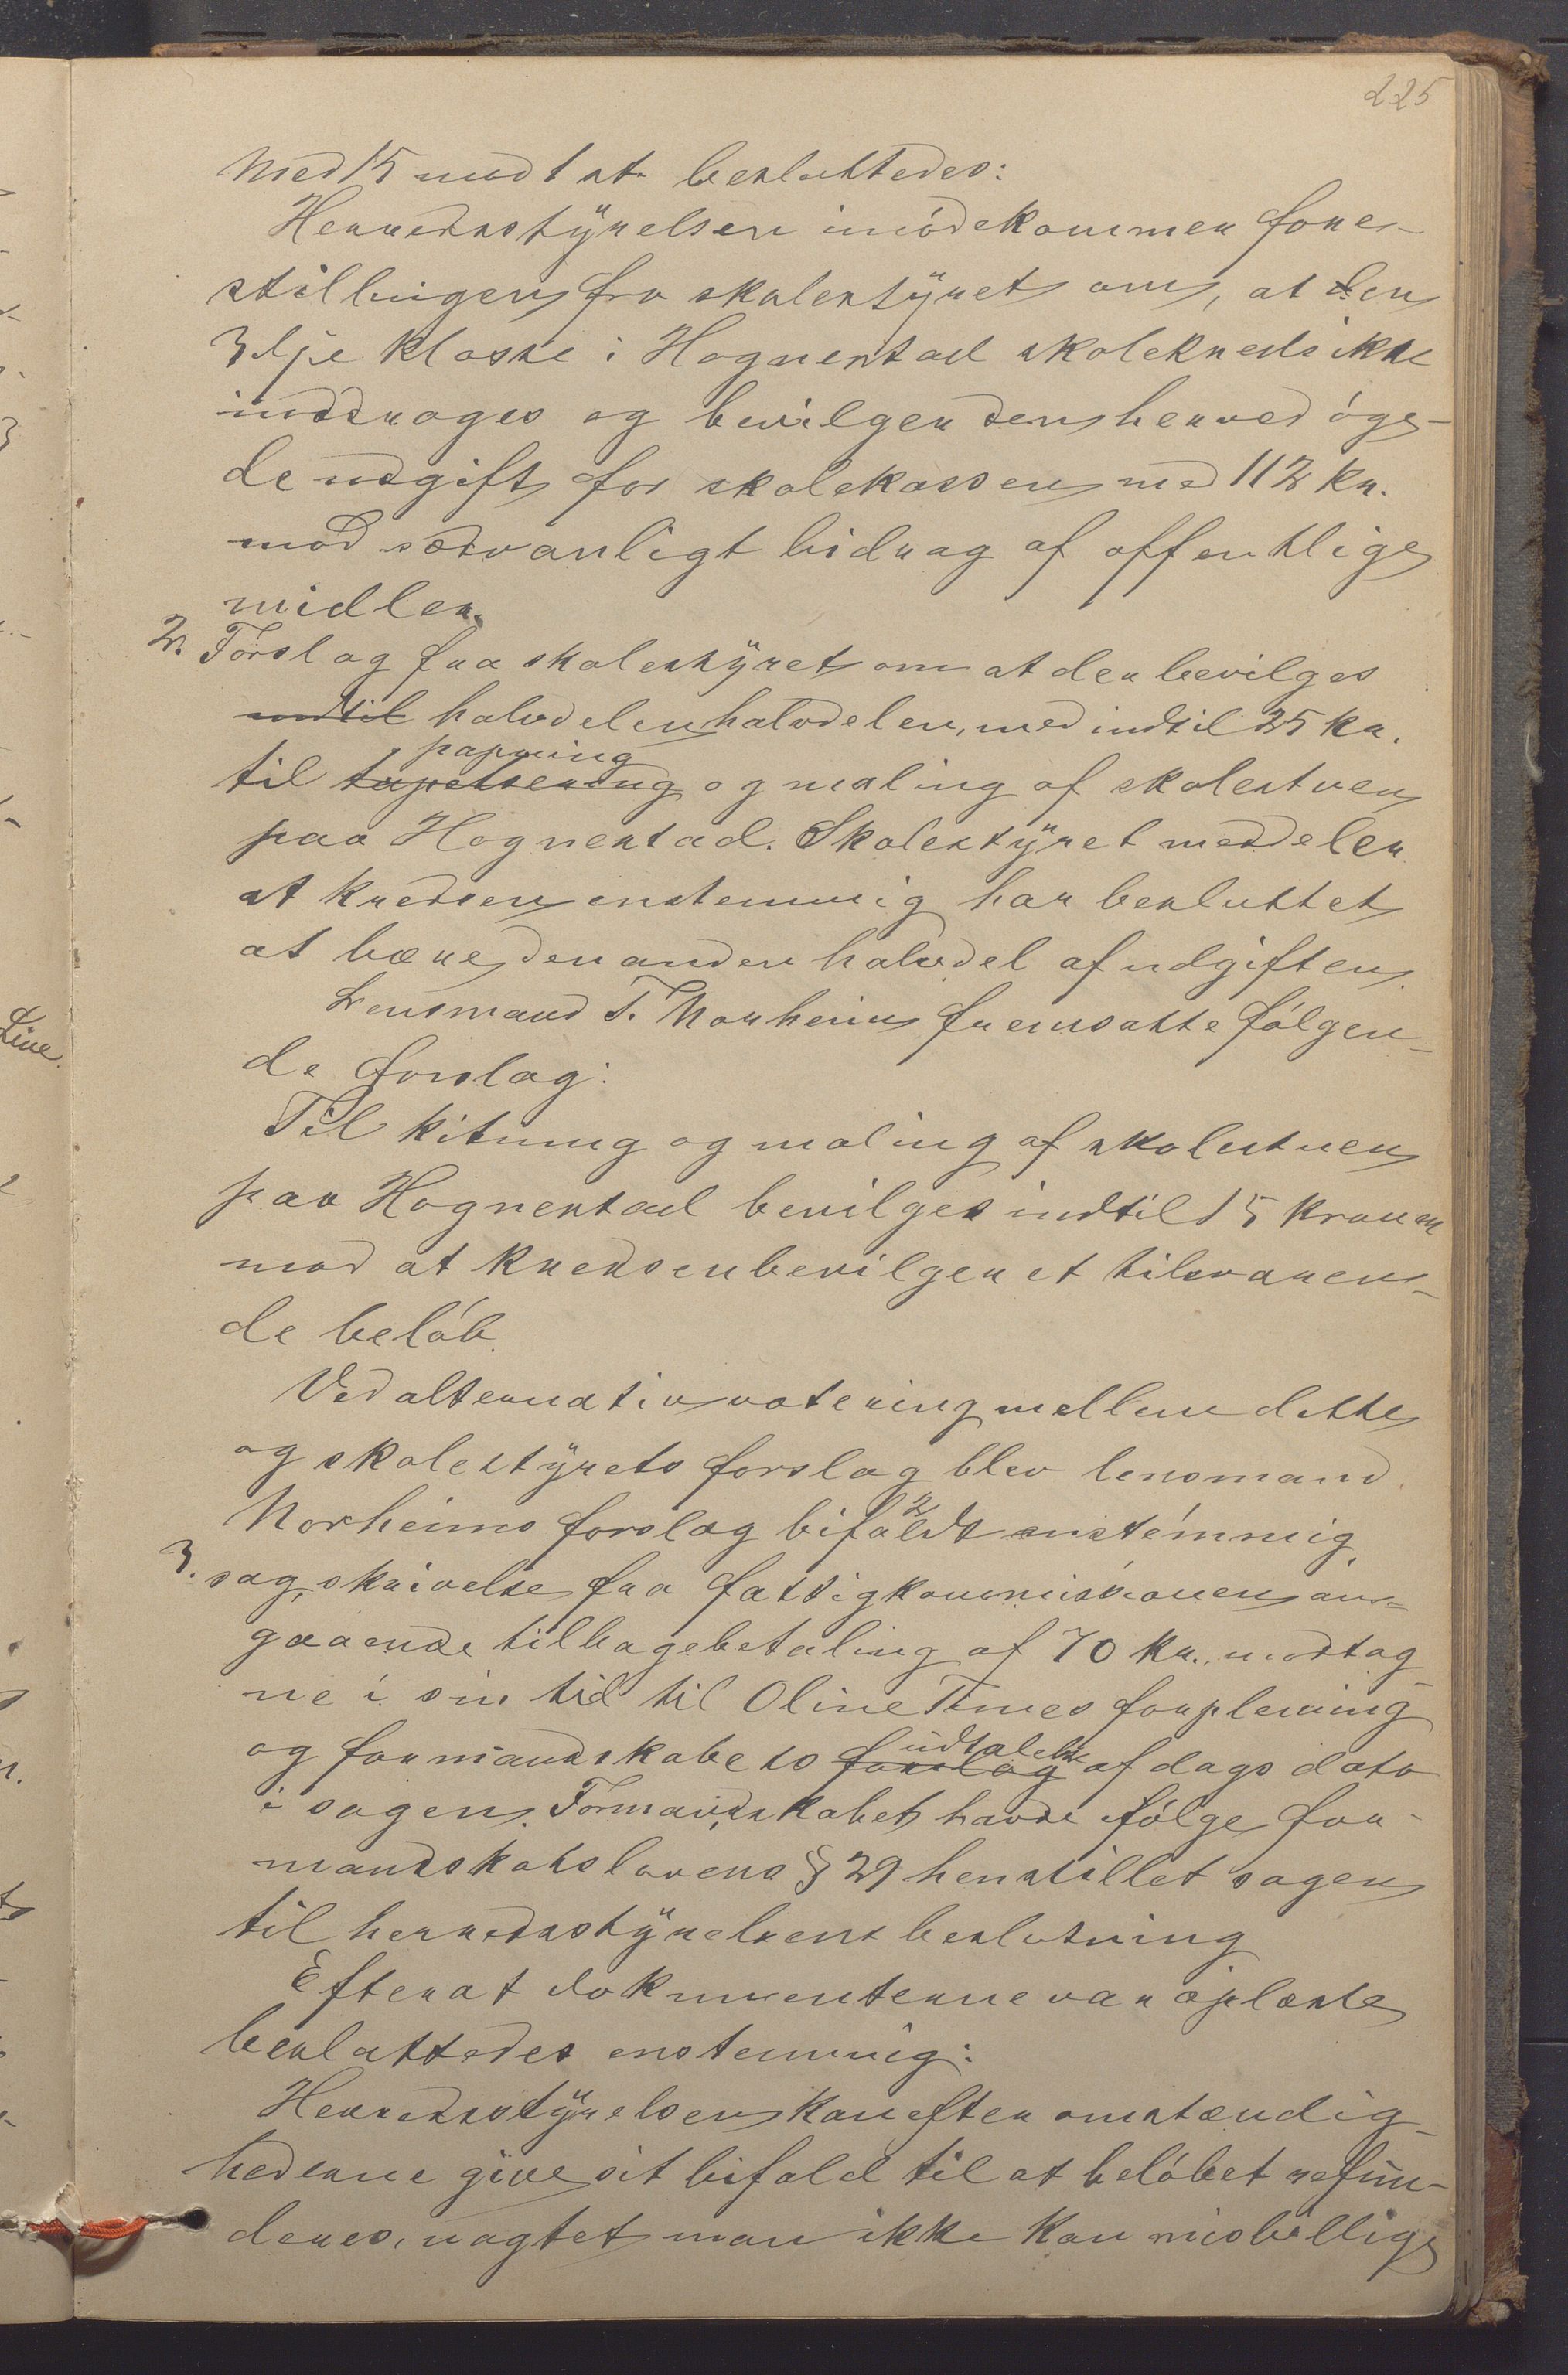 225
Med 15 mod 1 st. besluttedes:
Herredsstyrelsen imødekommer fore-
stillingen fra skolestyret om, at den
3dje klasse i Hognestad skolekreds ikke
inddrages og bevilger den herved øge-
de udgift for skolekassen med 112 kr.
mod sædvanligt bidrag af offentlige
midler.
2. Forslag fra skolestyret om at der bevilges
indtil halvdelen halvdelen, med indtil 25 kr.
papning
til tapetsering og maling af skolestuen
paa Hognestad. Skolestyret meddeler
at kredsen enstemmig har besluttet
at bære den anden halvdel af udgiften.
Lensmand T. Norheim fremsatte følgen-
de forslag:
Til kitning og maling af skolestuen
paa Hognestad bevilges indtil 15 kroner
mod at kredsen bevilger et tilsvaren-
de beløb.
Ved alternativ votering mellem dette
og skolestyrets forslag blev lensmand
Norheims forslag bifaldt enstemmig.
3. sag, skrivelse fra fattigkommissionen an-
gaaende tilbagebetaling af 70 kr., modtag-
ne i sin tid til Oline Times forpleining
udtalelse
og formandskabets forslag af dags dato
i sagen. Formandskabet havde ifølge for-
mandskabslovens § 29 henstillet sagen
til herredsstyrelsens beslutning
Efter at dokumenterne var oplæste
besluttedes enstemmig:
Herredsstyrelsen kan efter omstændig-
hederne give sit bifald til at beløbet refun-
deres, uagtet man ikke kan misbillige
Line